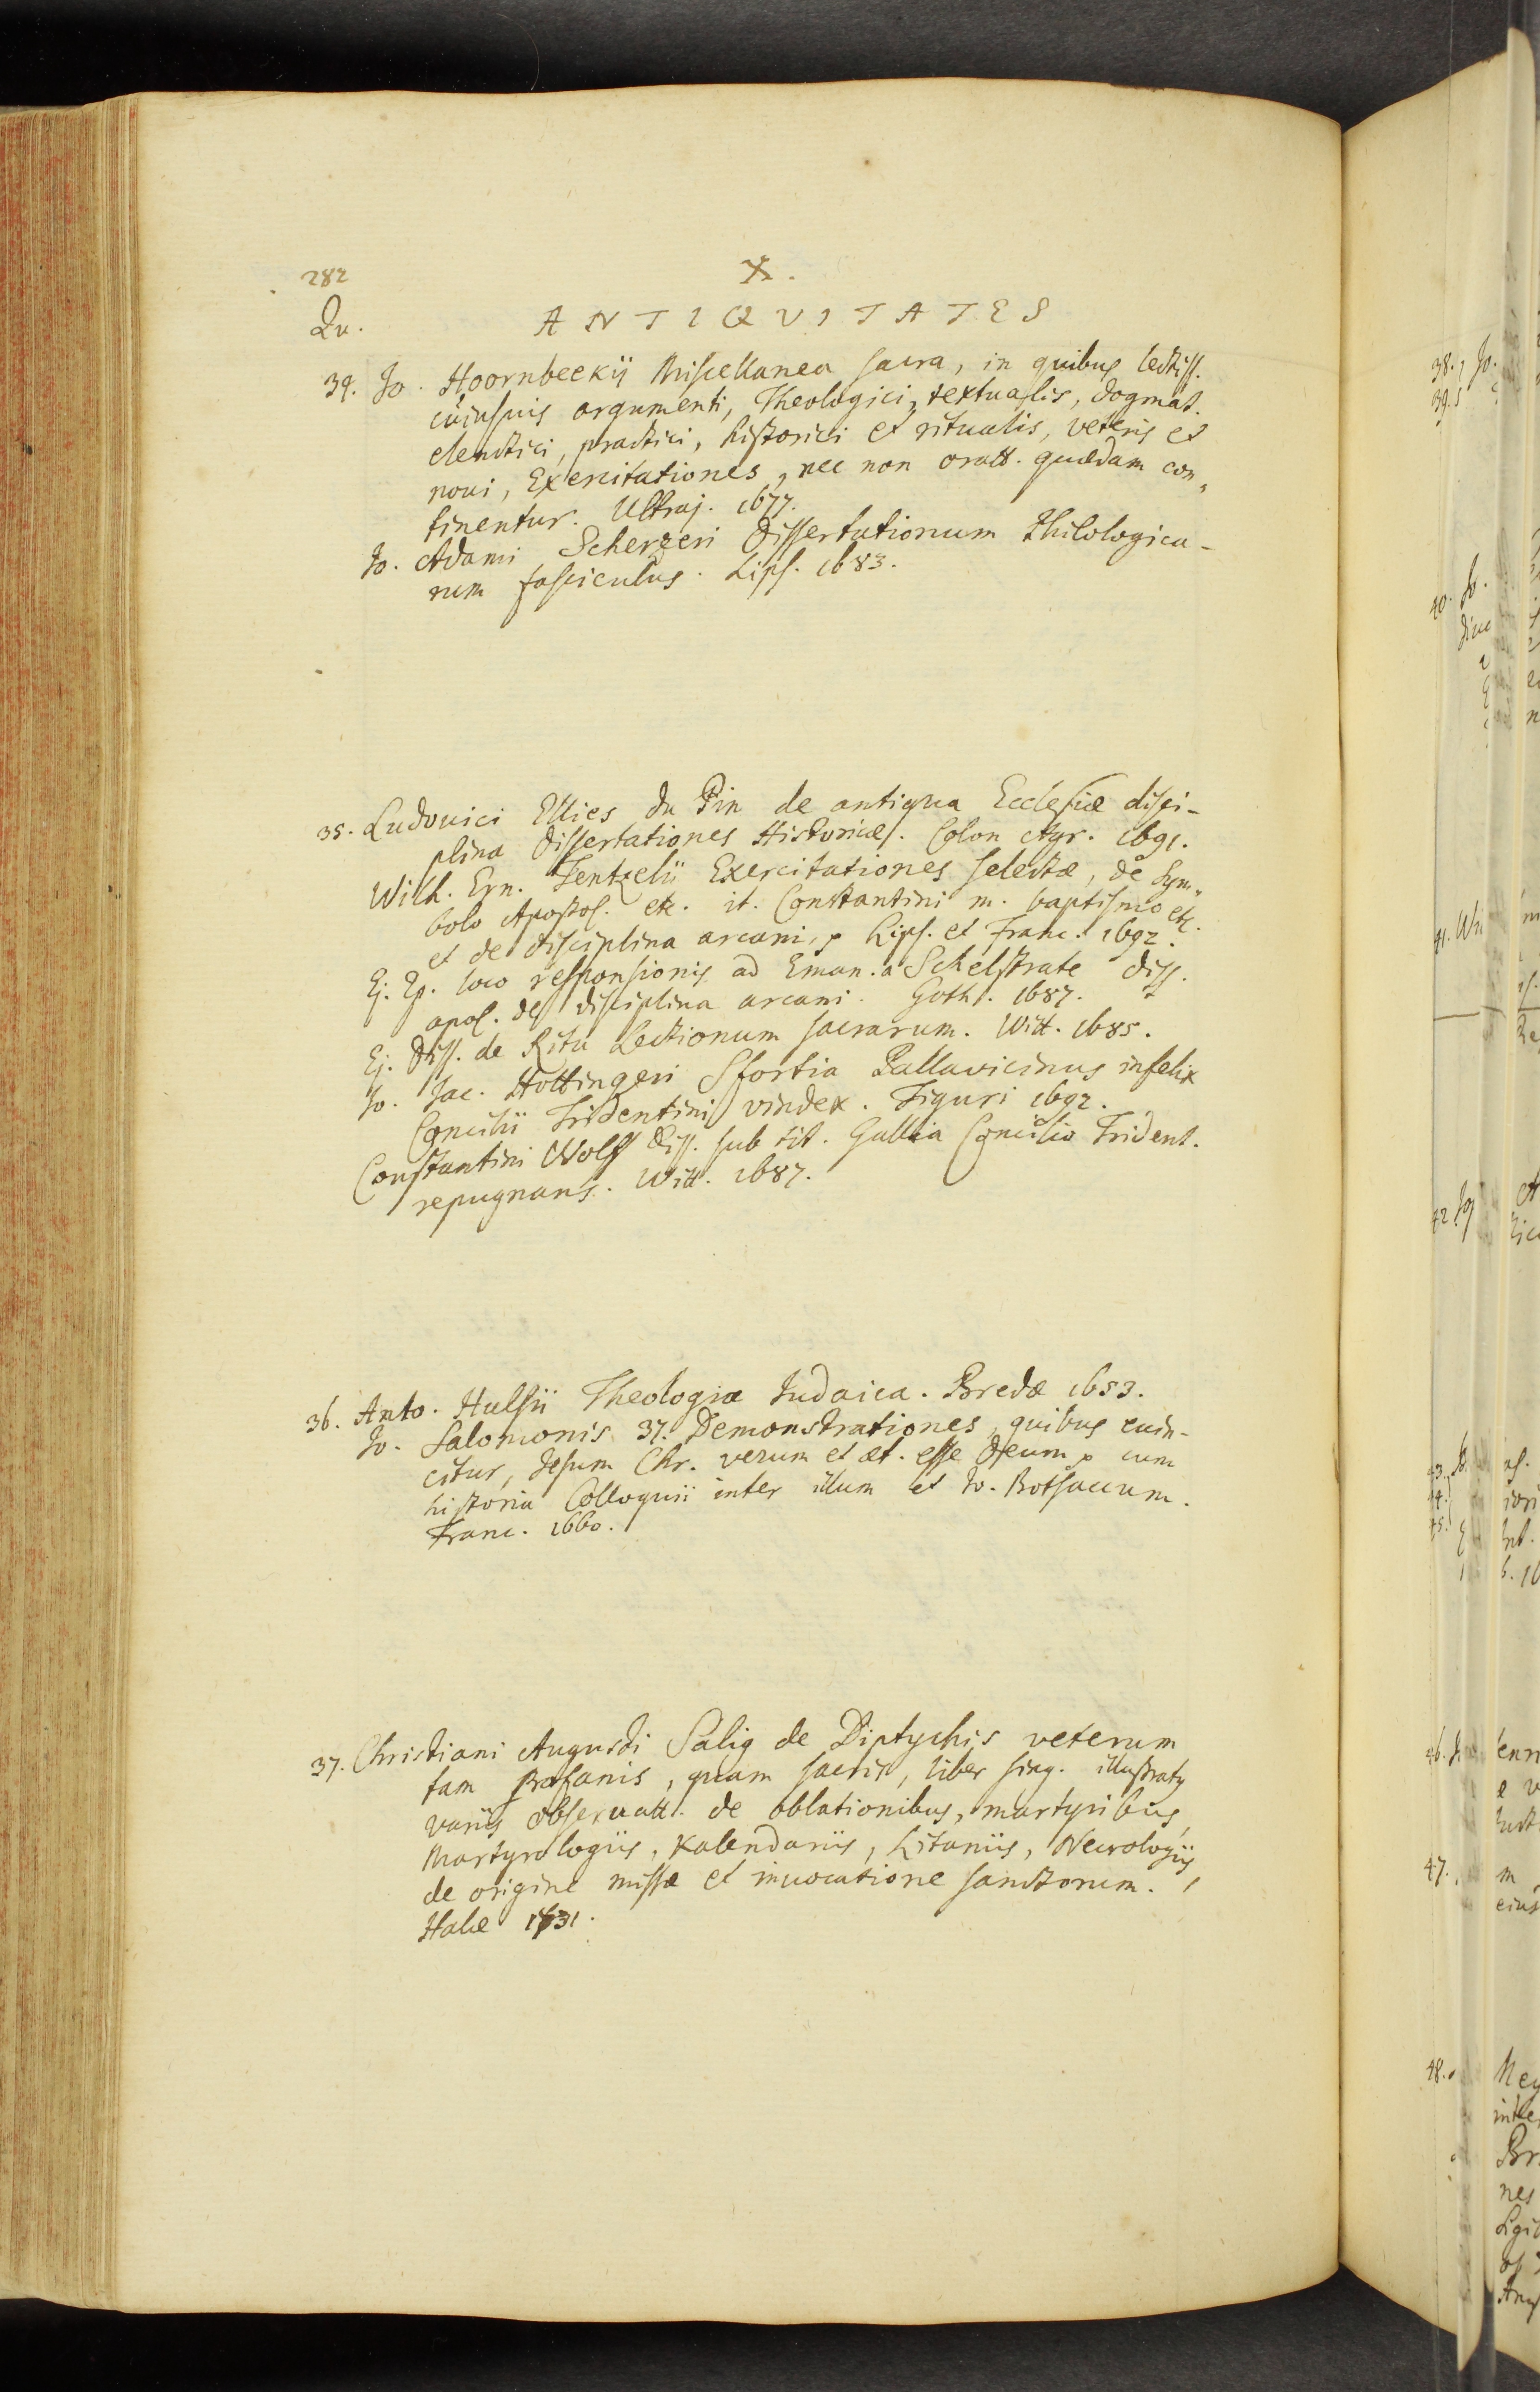 282
X.
Qu.
ANTIQVITATES
34. Jo. Hoornbeekij Miscellanea sacra, in quibus lectiss.
cuiusuis argumenti, Theologici, textualis, dogmat.
elenctici, practici, historici et ritualis, veteris et
noui, Exercitationes, nec non oratt. quaedam con„
tinentur. Ultraj. 1677.
Jo. Adami Scherzeri Dissertationum Philologica-
rum fasciculus. Lips. 1683.
35. Ludouici Ellies du Pin de antiqua Ecclesiæ disci-
plina Dissertationes Historicæ. Colon Agr. 1691.
Wilh. Ern. Tentzelii Exercitationes selectæ, de Sym„
bolo Apostol. etc. it. Constantini m. baptismo etc.
et de disciplina arcani, Lips. et Franc. 1692.
Ej. Ep. loco responsionis ad Eman. a Schelstrate Diss.
apol. de disciplina arcani. Goth. 1687.
Ej. Diss. de Ritu Lectionum sacrarum. Witt. 1685.
Jo. Jac. Hottingeri Sfortia Pallavicinus infelix
Concilii Tridentini vindex. Tiguri 1692.
Constantini Wolff Diss. sub tit. Gallia Concilio Trident.
repugnans. Witt. 1687.
36. Anto. Hulsii Theologia Judaica. Bredæ 1653.
Jo. Salomonis 37. Demonstrationes, quibus euin-
citur, Jesum Chr. verum et æt. esse Deum, cum
historia Colloquii inter illum et Jo. Botsaccum.
Franc. 1660.
37. Christiani Augusti Salig de Diptychis veterum
tam profanis, quam sacris, liber sing. illustratus
variis obseruatt. de oblationibus, martyribus,
Martyrologiis, Kalendariis, Litaniis, Necrologiis,
de origine missæ et inuocatione sanctorum.
Halæ 1731.
38. Jo.
39.
40. Jo.
41. Wi
42
43.
44.
45.
46.
47.
48.